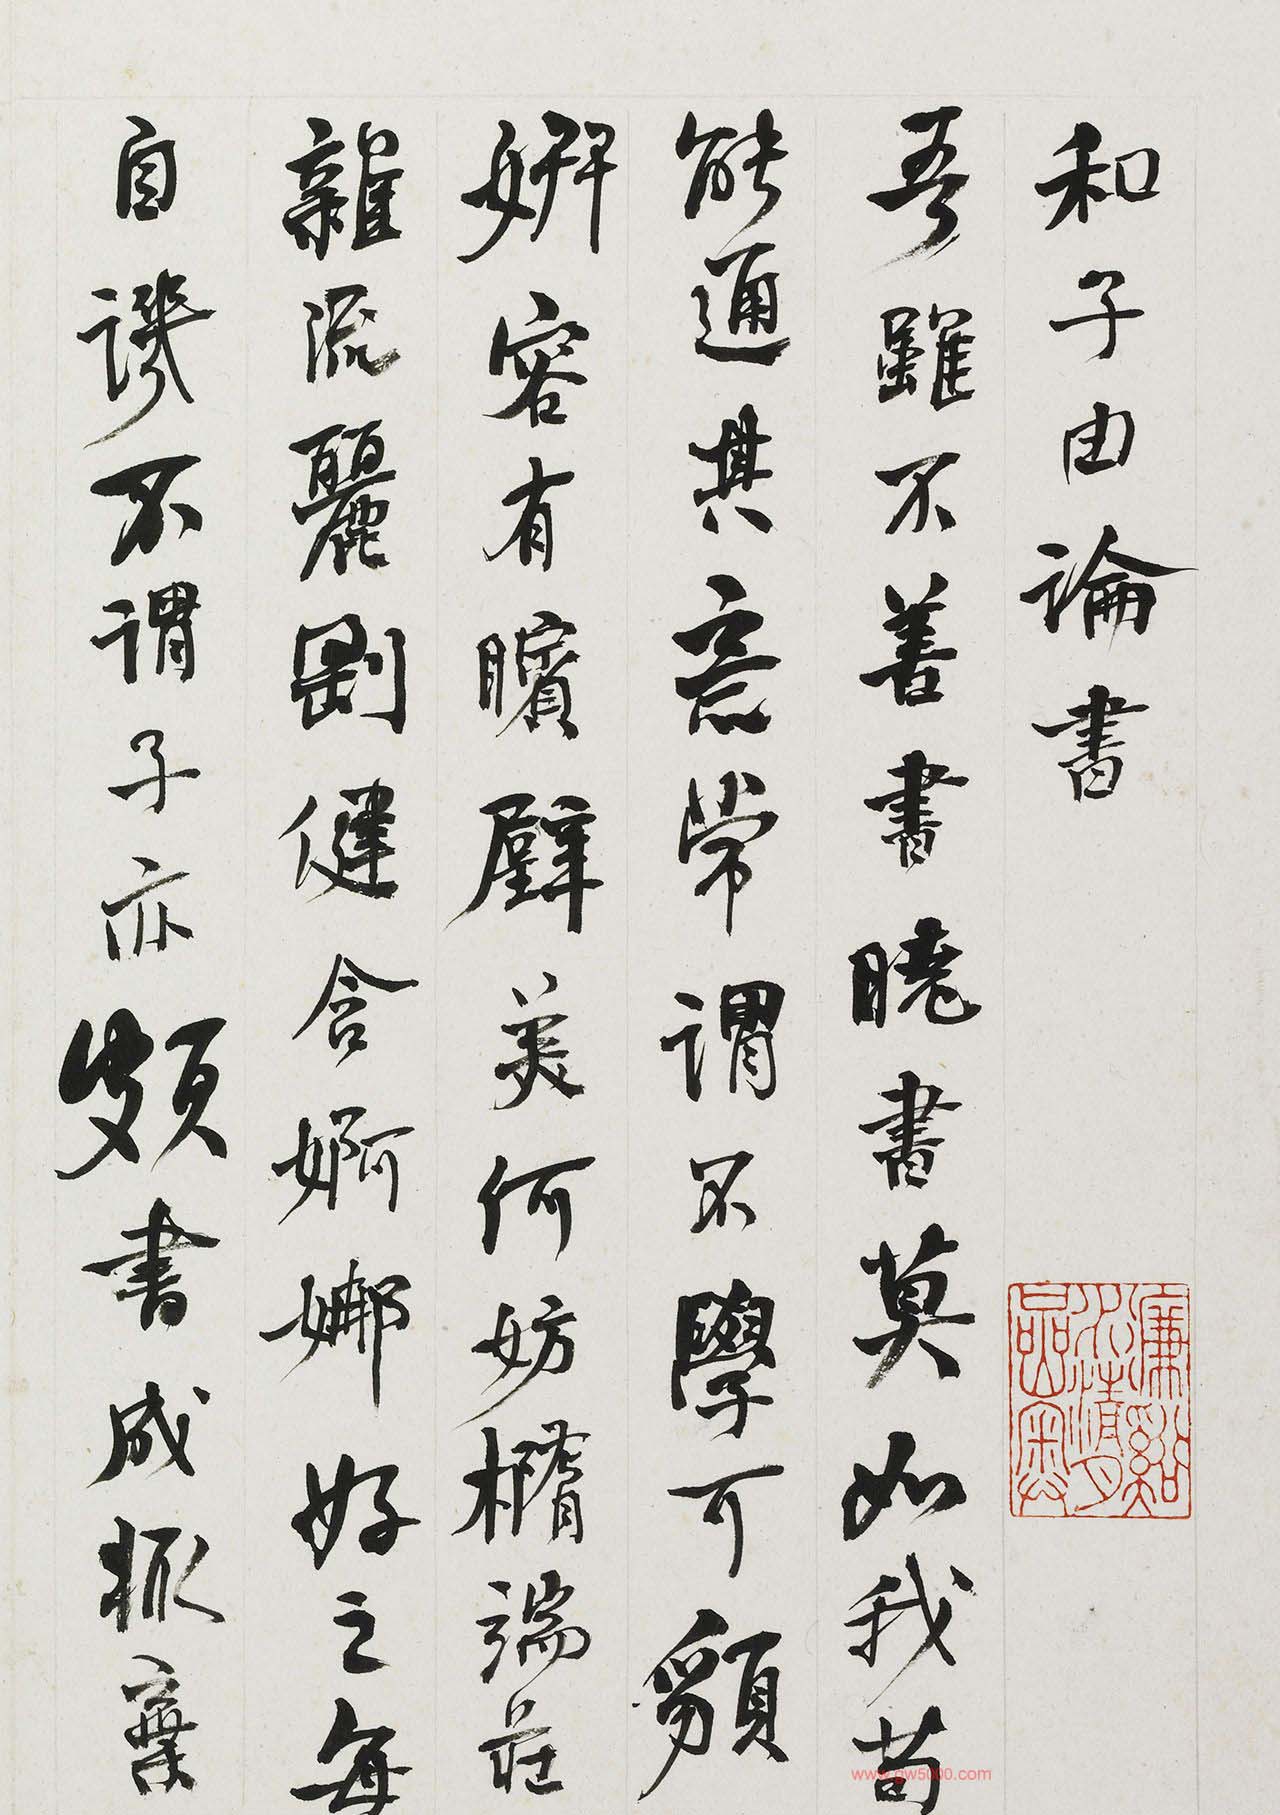 和子由論書
吾雖不善書曉書莫如我苟
能通其意常謂不學可䫉
姸容有矉璧美何妨橢端莊
雜流麗剛健含婀娜好之每
自譏不謂子亦頗書成輒棄
www.gw5000.com